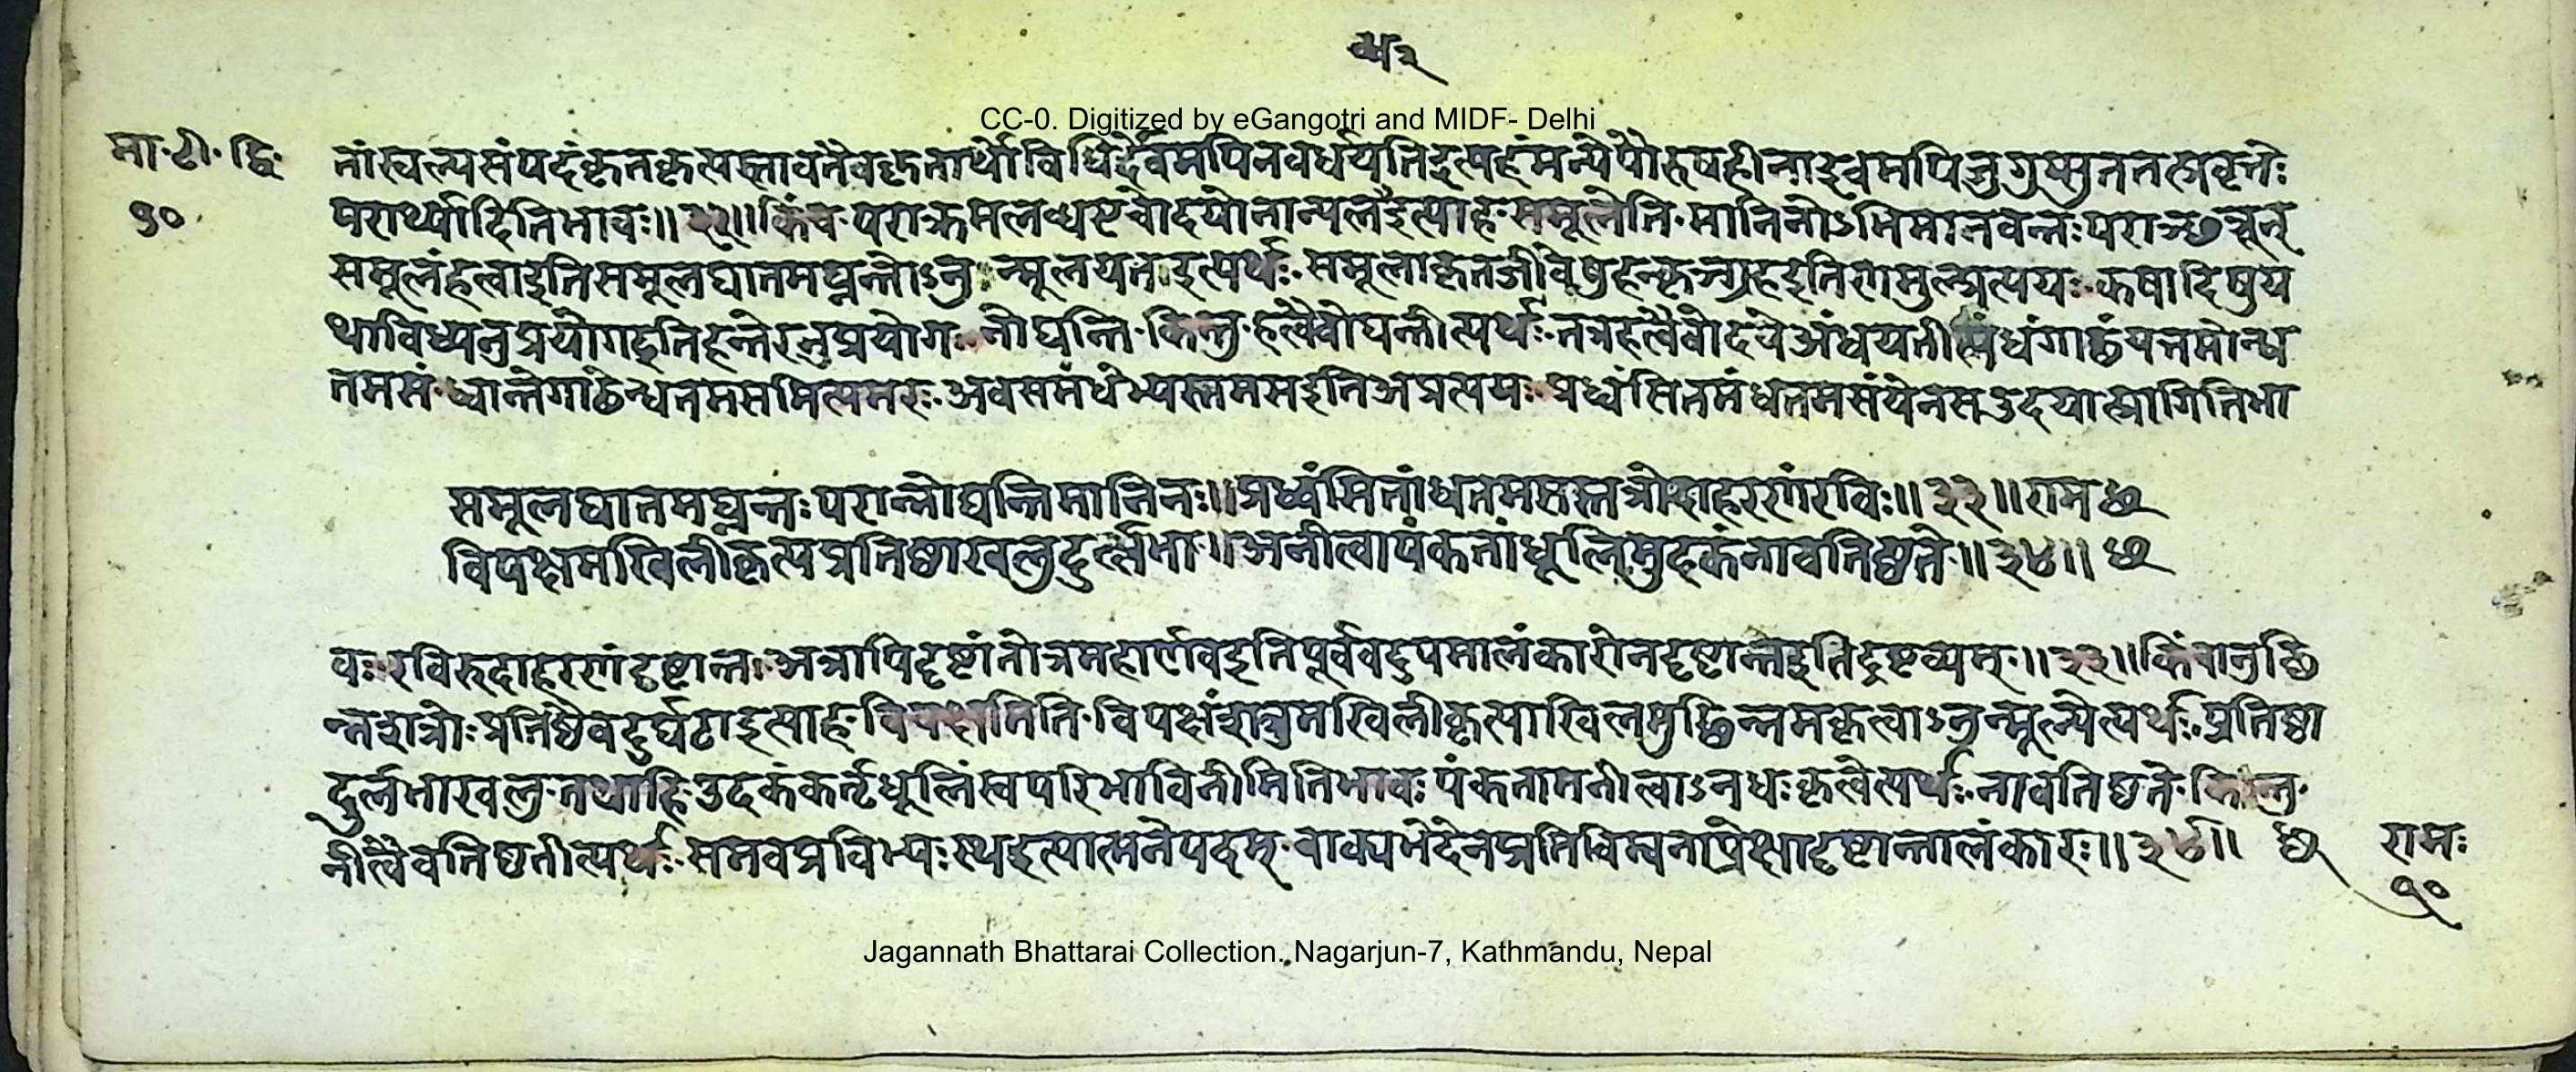 ५२
CC-0. Digitized by eGangotri and MIDF- Delhi
मा·टी·द्वि·
१०
नांस्वल्पसंपदंकृतकृत्यस्तावतैवकृतार्थोविधिर्दैवमपिनवर्धयतिइत्यहंमन्येपौरुषहीनाद्दैवमपिजुगुप्सुतत्प्रवृत्तेः
परार्थ्यादितिभावः॥३२॥किंच·पराक्रमलब्धएवोदयोनान्यलइत्याह·समूलेति·मानिनोऽभिमानवन्तःपराञ्छत्रून्
समूलंहत्वाइतिसमूलघातमघ्नन्तोऽनुन्मूलयन्तइत्यर्थः·समूलाकृतजीवेषुहन्कृञ्ग्रहइतिणमुल्प्रत्ययः·कषादिषुय
थाविध्यनुप्रयोगइतिहन्तेरनुप्रयोगः·नोद्यन्ति·किन्तु·हत्वैवोद्यन्तीत्यर्थः·तत्रहत्वैवोदये अंधयतीत्यंधंगाढंयत्तमोन्ध
तमसं·ध्वान्तेगाढेन्धतमसमित्यमरः·अवसमंधेभ्यस्तमसइतिअप्रत्ययः·प्रध्वंसितमंधतमसंयेनसउदयात्प्रागितिभा
समूलघातमघ्नन्तःपरान्नोद्यन्तिमानिनः॥प्रध्वंसितांधतमसस्तत्रोदाहरणंरविः॥३३॥राम
विपक्षमखिलीकृत्यप्रतिष्ठाखलुदुर्ल्लभा॥अनीत्वापंकतांधूलिमुदकंनावतिष्ठते॥३४॥
वः·रविरुदाहरणंदृष्टान्तः·अत्रापिदृष्टांतोत्रमहार्णवइतिपूर्ववदुपमालंकारोनदृष्टान्तइतिद्रष्टव्यम्॥३३॥किंचानुच्छि
न्नशत्रोः·प्रतिष्ठैवदुर्घटाइत्याह·विपक्षमिति·विपक्षंशत्रुमखिलीकृत्याखिलमुच्छिन्नमकृत्वाऽनुन्मूल्येत्यर्थः·प्रतिष्ठा
दुर्लभाखलु·तथाहि·उदकंकर्त्तृधूलिंस्वपरिभाविनीमितिभावः·पंकतामनीत्वाऽनधःकृत्वेत्यर्थः·नावतिष्ठते·किन्तु·
नीत्वैवतिष्ठतीत्यर्थः·समवप्रविभ्यःस्थइत्यात्मनेपदम्·वाक्यभेदेनप्रतिबिम्बनापेक्षादृष्टान्तालंकारः॥३४॥
रामः
१०
Jagannath Bhattarai Collection. Nagarjun-7, Kathmandu, Nepal